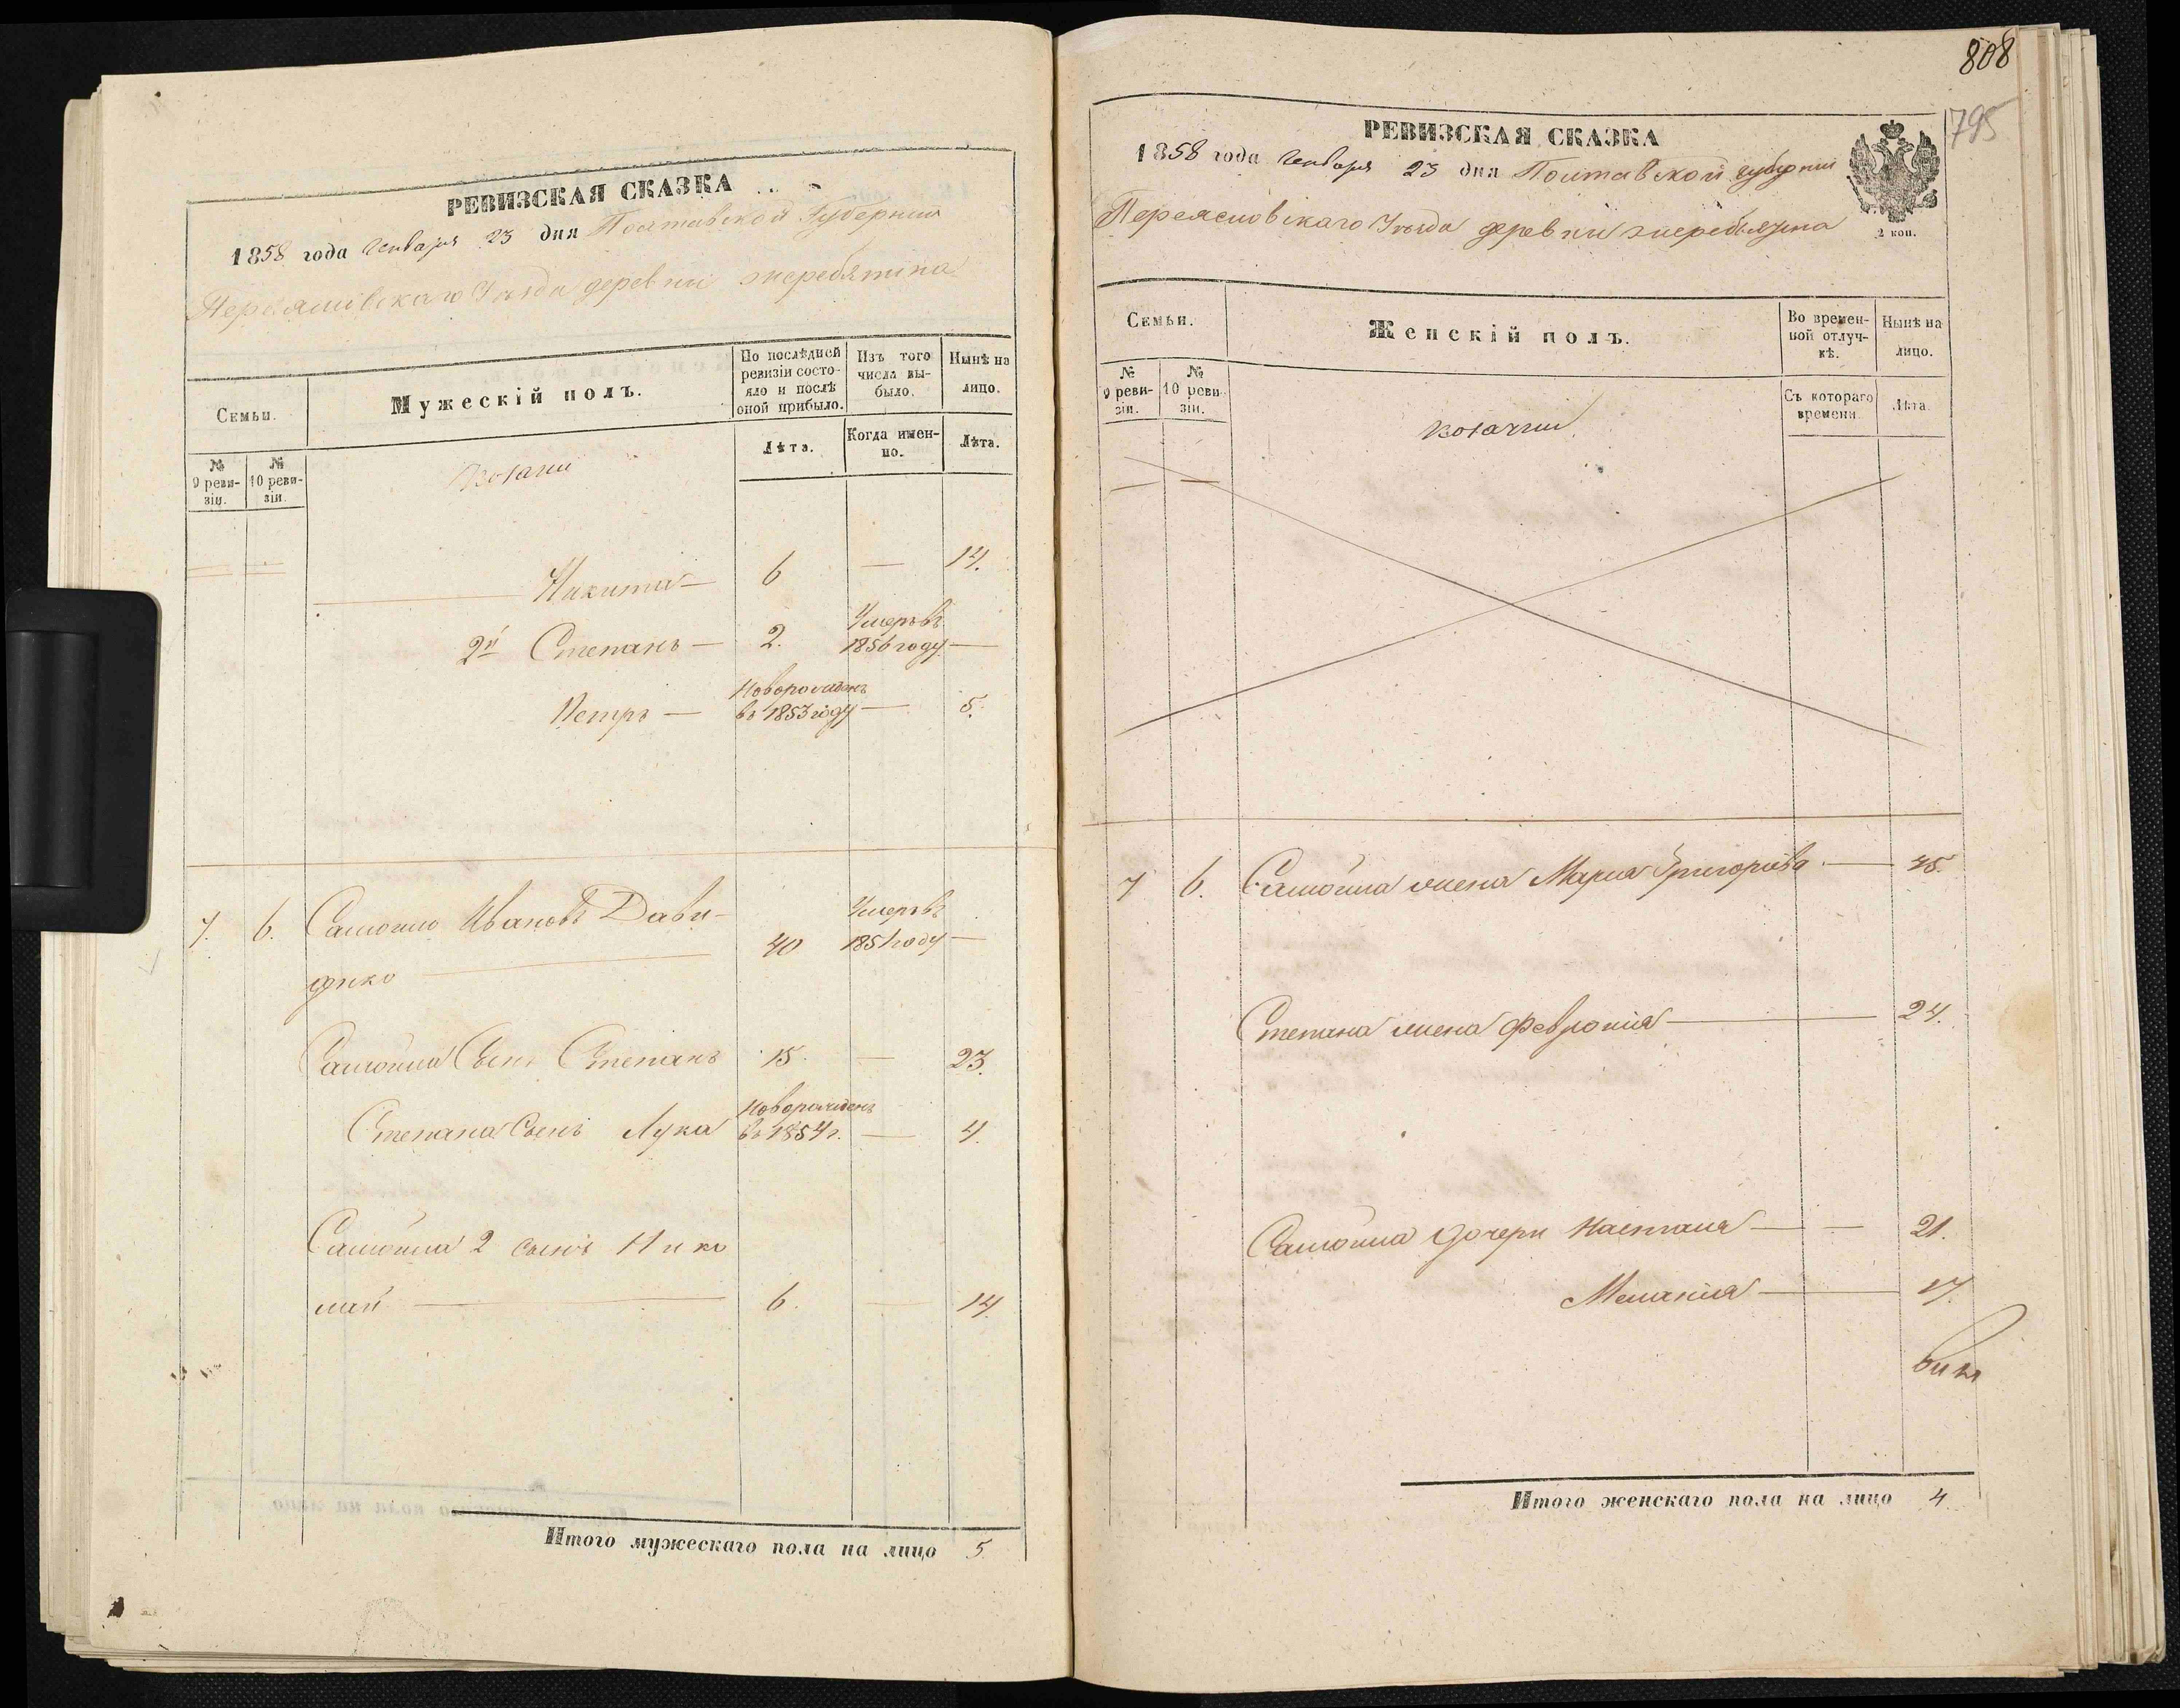 РЕВИЗСКАЯ СКАЗКА
1858 года Генваря 23 дня Полтавской Губернии
Переяславскаго Уезда деревни жеребятина
Семьи.
Мужескій полъ.
По послѣдней ревизіи состояло и послѣ оной прибыло.
Изъ того числа выбыло.
Нынѣ на лицо.
№ 9 ревизіи.
№ 10 ревизіи.
Козаки
Лѣта.
Когда именно.
Лѣта.
Никита — 6 — 14.
2й Степанъ — 2. Умеръ въ 1856 году —
Петръ — Новорожденъ въ 1853 году — 5.
7. 6. Самойло Ивановъ Дави-
дко — 40 Умеръ въ 1851 году —
Самойла Сынъ Степанъ 15. — 23.
Степана Сынъ Лука Новорожденъ въ 1854 г. — 4.
Самойла 2 сынъ Нико
лай — 6. — 14.
Итого мужескаго пола на лицо 5
808
795
РЕВИЗСКАЯ СКАЗКА
1858 года Генваря 23 дня Полтавской губернии
Переяславскаго Уезда деревни жеребятина
2 коп.
Семьи.
Женскій полъ.
Во временной отлучкѣ.
Нынѣ на лицо.
№ 9 ревизіи.
№ 10 ревизіи.
Козачки
Съ котораго времени.
Лѣта.
7 6. Самойла жена Мария Григорьева — 45.
Степана жена Феврония — 24.
Самойла дочери Настасия — — 21.
Мелания — 17.
Итого женскаго пола на лицо 4